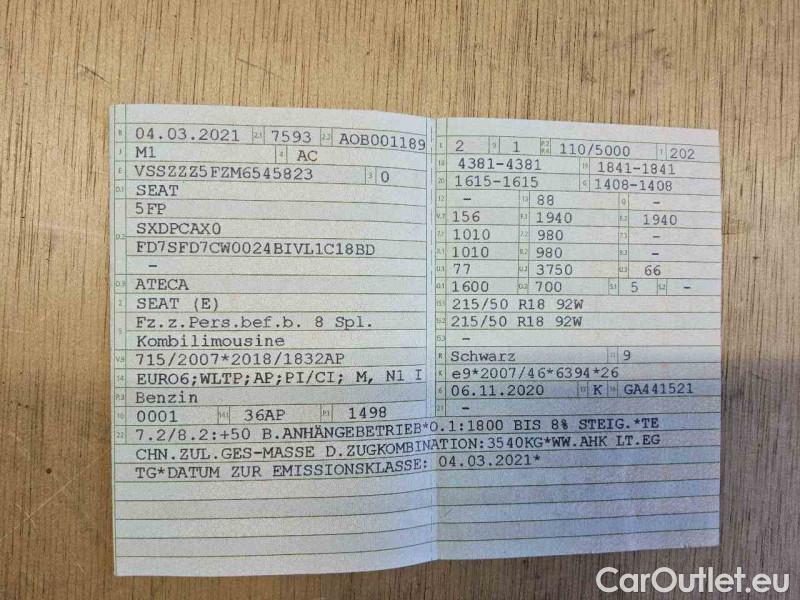 B 04.03.2021 2.1 7593 2.2 AOB001189
J M1 4 AC
E VSSZZZ5FZM6545823 3 0
D.1 SEAT
5FP
D.2 SXDPCAX0
FD7SFD7CW0024BIVL1C18BD
-
D.3 ATECA
2 SEAT (E)
5 Fz.z.Pers.bef.b. 8 Spl.
Kombilimousine
V.9 715/2007*2018/1832AP
14 EURO6;WLTP;AP;PI/CI; M, N1 I
P.3 Benzin
10 0001 14.1 36AP P.1 1498
22 7.2/8.2:+50 B.ANHÄNGEBETRIEB*O.1:1800 BIS 8% STEIG.*TE
CHN.ZUL.GES-MASSE D.ZUGKOMBINATION:3540KG*WW.AHK LT.EG
TG*DATUM ZUR EMISSIONSKLASSE: 04.03.2021*
L 2 9 1 P.2 P.4 110/5000 T 202
18 4381-4381 19 1841-1841
20 1615-1615 G 1408-1408
12 - 13 88 Q -
V.7 156 F.1 1940 F.2 1940
7.1 1010 7.2 980 7.3 -
8.1 1010 8.2 980 8.3 -
U.1 77 U.2 3750 U.3 66
O.1 1600 O.2 700 S.1 5 S.2 -
15.1 215/50 R18 92W
15.2 215/50 R18 92W
15.3 -
R Schwarz 11 9
K e9*2007/46*6394*26
6 06.11.2020 17 K 16 GA441521
21 -
CarOutlet.eu